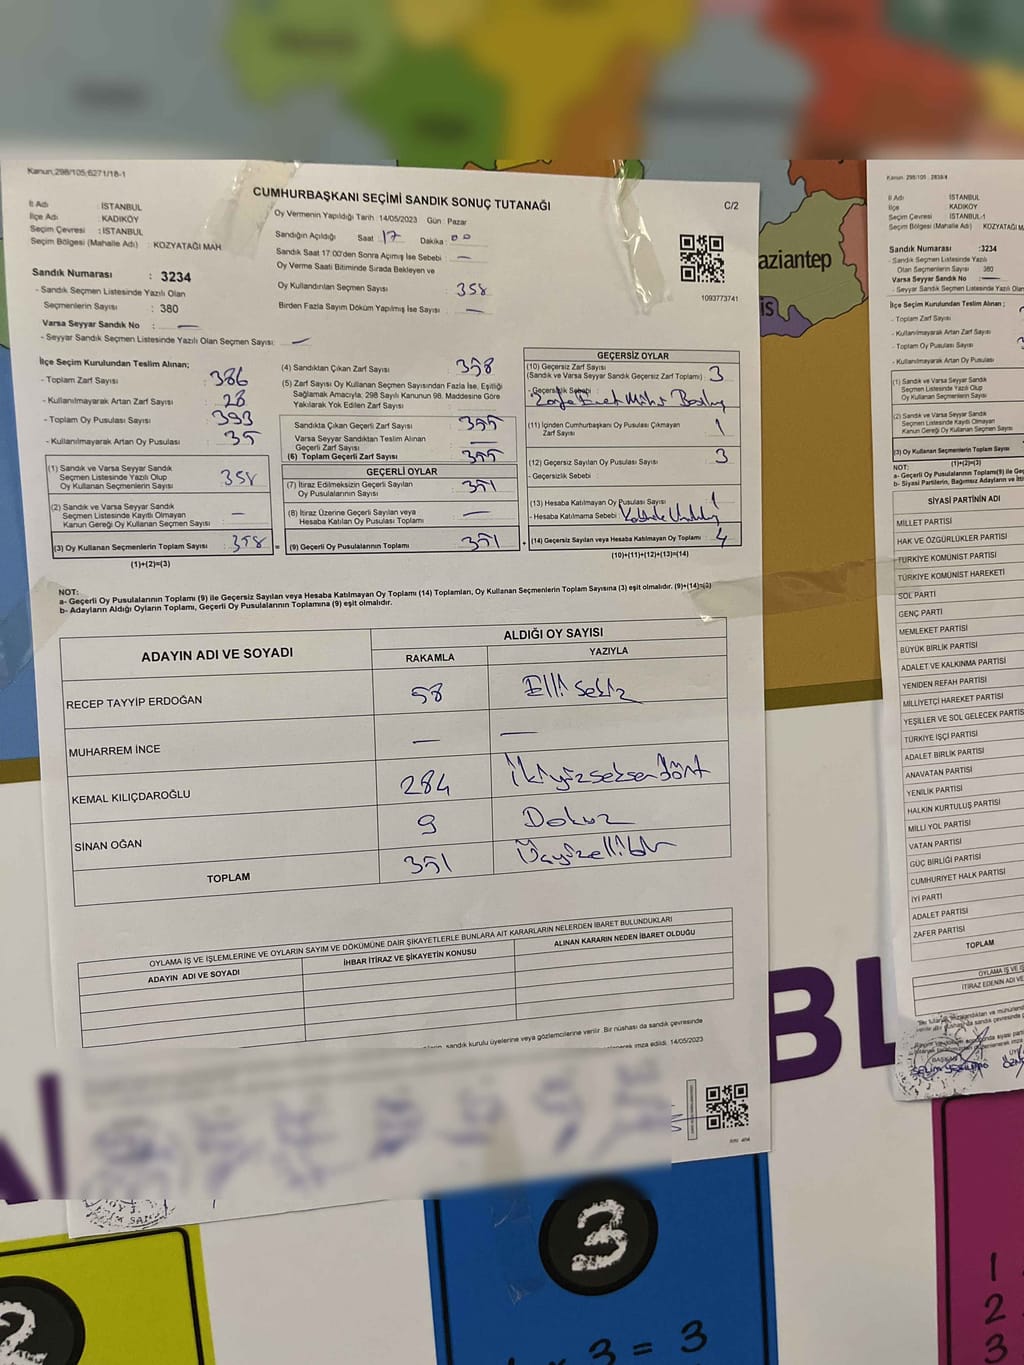 Kanun,298/105;6271/18-1
CUMHURBAŞKANI SEÇİMİ SANDIK SONUÇ TUTANAĞI
C/2
İl Adı : İSTANBUL
İlçe Adı : KADIKÖY
Seçim Çevresi : İSTANBUL
Seçim Bölgesi (Mahalle Adı) : KOZYATAĞI MAH.
Oy Vermenin Yapıldığı Tarih :14/05/2023 Gün : Pazar
Sandığın Açıldığı Saat 17 Dakika : 00
Sandık Saat 17:00'den Sonra Açılmış İse Sebebi : —
Oy Verme Saati Bitiminde Sırada Bekleyen ve
Oy Kullandırılan Seçmen Sayısı : 358
Birden Fazla Sayım Döküm Yapılmış İse Sayısı : —
1093773741
Sandık Numarası : 3234
- Sandık Seçmen Listesinde Yazılı Olan
Seçmenlerin Sayısı : 380
Varsa Seyyar Sandık No : —
- Seyyar Sandık Seçmen Listesinde Yazılı Olan Seçmen Sayısı: —
İlçe Seçim Kurulundan Teslim Alınan;
- Toplam Zarf Sayısı : 386
- Kullanılmayarak Artan Zarf Sayısı : 28
- Toplam Oy Pusulası Sayısı : 393
- Kullanılmayarak Artan Oy Pusulası : 35
(1) Sandık ve Varsa Seyyar Sandık
Seçmen Listesinde Yazılı Olup
Oy Kullanan Seçmenlerin Sayısı : 358
(2) Sandık ve Varsa Seyyar Sandık
Seçmen Listesinde Kayıtlı Olmayan
Kanun Gereği Oy Kullanan Seçmen Sayısı : —
(3) Oy Kullanan Seçmenlerin Toplam Sayısı : 358
(1)+(2)=(3)
(4) Sandıktan Çıkan Zarf Sayısı : 358
(5) Zarf Sayısı Oy Kullanan Seçmen Sayısından Fazla İse, Eşitliği
Sağlamak Amacıyla; 298 Sayılı Kanunun 98. Maddesine Göre
Yakılarak Yok Edilen Zarf Sayısı :
Sandıkta Çıkan Geçerli Zarf Sayısı : 355
Varsa Seyyar Sandıktan Teslim Alınan
Geçerli Zarf Sayısı : —
(6) Toplam Geçerli Zarf Sayısı : 355
GEÇERLİ OYLAR
(7) İtiraz Edilmeksizin Geçerli Sayılan
Oy Pusulalarının Sayısı : 351
(8) İtiraz Üzerine Geçerli Sayılan veya
Hesaba Katılan Oy Pusulaları Toplamı : —
(9) Geçerli Oy Pusulalarının Toplamı : 351
GEÇERSİZ OYLAR
(10) Geçersiz Zarf Sayısı
(Sandık ve Varsa Seyyar Sandık Geçersiz Zarf Toplamı) : 3
- Geçersizlik Sebebi :
(11) İçinden Cumhurbaşkanı Oy Pusulası Çıkmayan
Zarf Sayısı : 1
(12) Geçersiz Sayılan Oy Pusulası Sayısı : 3
- Geçersizlik Sebebi :
(13) Hesaba Katılmayan Oy Pusulası Sayısı : 1
- Hesaba Katılmama Sebebi :
(14) Geçersiz Sayılan veya Hesaba Katılmayan Oy Toplamı : 4
(10)+(11)+(12)+(13)=(14)
NOT:
a- Geçerli Oy Pusulalarının Toplamı (9) ile Geçersiz Sayılan veya Hesaba Katılmayan Oy Toplamı (14) Toplamları, Oy Kullanan Seçmenlerin Toplam Sayısına (3) eşit olmalıdır. (9)+(14)=(3)
b- Adayların Aldığı Oyların Toplamı, Geçerli Oy Pusulalarının Toplamına (9) eşit olmalıdır.
ADAYIN ADI VE SOYADI
ALDIĞI OY SAYISI
RAKAMLA YAZIYLA
RECEP TAYYİP ERDOĞAN 58 Elli sekiz
MUHARREM İNCE — —
KEMAL KILIÇDAROĞLU 284 İkiyüzseksendört
SİNAN OĞAN 9 Dokuz
TOPLAM 351 Üçyüzellibir
OYLAMA İŞ VE İŞLEMLERİNE VE OYLARIN SAYIM VE DÖKÜMÜNE DAİR ŞİKAYETLERLE BUNLARA AİT KARARLARIN NELERDEN İBARET BULUNDUKLARI
ADAYIN ADI VE SOYADI İHBAR İTİRAZ VE ŞİKAYETİN KONUSU ALINAN KARARIN NEDEN İBARET OLDUĞU
sandık kurulu üyelerine veya gözlemcilerine verilir. Bir nüshası da sandık çevresinde
imza edildi. 14/05/2023
Kanun: 298/105 ; 2839/4
İl Adı İSTANBUL
İlçe KADIKÖY
Seçim Çevresi : İSTANBUL-1
Seçim Bölgesi (Mahalle Adı) KOZYATAĞI MA
Sandık Numarası :3234
- Sandık Seçmen Listesinde Yazılı
Olan Seçmenlerin Sayısı 380
Varsa Seyyar Sandık No
- Seyyar Sandık Seçmen Listesinde Yazılı Olan
İlçe Seçim Kurulundan Teslim Alınan ;
- Toplam Zarf Sayısı
- Kullanılmayarak Artan Zarf Sayısı
- Toplam Oy Pusulası Sayısı
- Kullanılmayarak Artan Oy Pusulası
(1) Sandık ve Varsa Seyyar Sandık
Seçmen Listesinde Yazılı Olup
Oy Kullanan Seçmenlerin Sayısı
(2) Sandık ve Varsa Seyyar Sandık
Seçmen Listesinde Kayıtlı Olmayan
Kanun Gereği Oy Kullanan Seçmen Sayısı
(3) Oy Kullanan Seçmenlerin Toplam Sayısı
(1)+(2)=(3)
NOT:
a- Geçerli Oy Pusulalarının Toplamı(9) ile Geç
b- Siyasi Partilerin, Bağımsız Adayların ve İtti
SİYASİ PARTİNİN ADI
MİLLET PARTİSİ
HAK VE ÖZGÜRLÜKLER PARTİSİ
TÜRKİYE KOMÜNİST PARTİSİ
TÜRKİYE KOMÜNİST HAREKETİ
SOL PARTİ
GENÇ PARTİ
MEMLEKET PARTİSİ
BÜYÜK BİRLİK PARTİSİ
ADALET VE KALKINMA PARTİSİ
YENİDEN REFAH PARTİSİ
MİLLİYETÇİ HAREKET PARTİSİ
YEŞİLLER VE SOL GELECEK PARTİSİ
TÜRKİYE İŞÇİ PARTİSİ
ADALET BİRLİK PARTİSİ
ANAVATAN PARTİSİ
YENİLİK PARTİSİ
HALKIN KURTULUŞ PARTİSİ
MİLLİ YOL PARTİSİ
VATAN PARTİSİ
GÜÇ BİRLİĞİ PARTİSİ
CUMHURİYET HALK PARTİSİ
İYİ PARTİ
ADALET PARTİSİ
ZAFER PARTİSİ
TOPLAM
OYLAMA İŞ VE İŞ
İTİRAZ EDENİN ADI VE
BAŞKAN
aziantep
is
BL
2
3
3 = 3
1
2
3